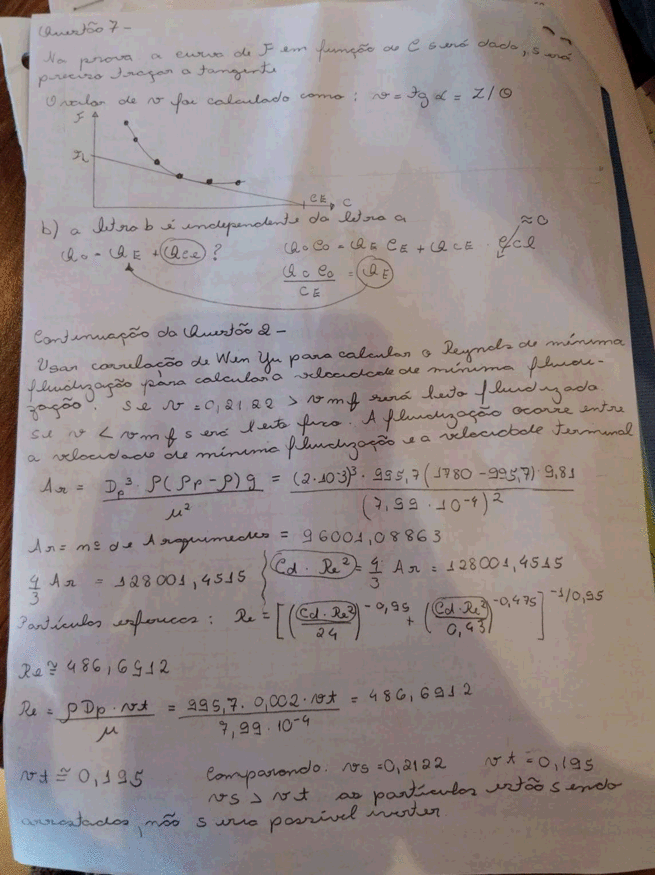 Questão 7-
Na prova a curva de F em função de C será dada, será
preciso traçar a tangente
O valor de v foi calculado como: v = tg α = Z/θ
F
C
CE
b) a letra b é independente da letra a
Q0 = QE + Qcl ?
Q0C0 = QE CE + Qcl · Ccl ≈ 0
Q0 C0 / CE = QE
Continuação da Questão 2-
Usar correlação de Wen Yu para calcular o Reynolds de mínima
fluidização para calcular a velocidade de mínima fluidi-
zação. se v = 0,2122 > vmf será leito fluidizado
se v < vmf será leito fixo. A fluidização ocorre entre
a velocidade de mínima fluidização e a velocidade terminal
Ar = Dp³·ρ(ρp - ρ)g / μ² = (2·10⁻³)³·995,7(1780 - 995,7)·9,81 / (7,99·10⁻⁴)²
Ar = nº de Arquimedes = 96001,08863
4/3 Ar = 128001,4515 { Cd·Re² = 4/3 Ar = 128001,4515
Partículas esféricas: Re = [(Cd·Re²/24)^-0,95 + (Cd·Re²/0,43)^-0,475]^-1/0,95
Re ≅ 486,6912
Re = ρDp·vt / μ = 995,7·0,002·vt / 7,99·10⁻⁴ = 486,6912
vt ≅ 0,195 Comparando: vs = 0,2122 vt = 0,195
vs > vt as partículas estão sendo
arrastadas, não seria possível inverter.